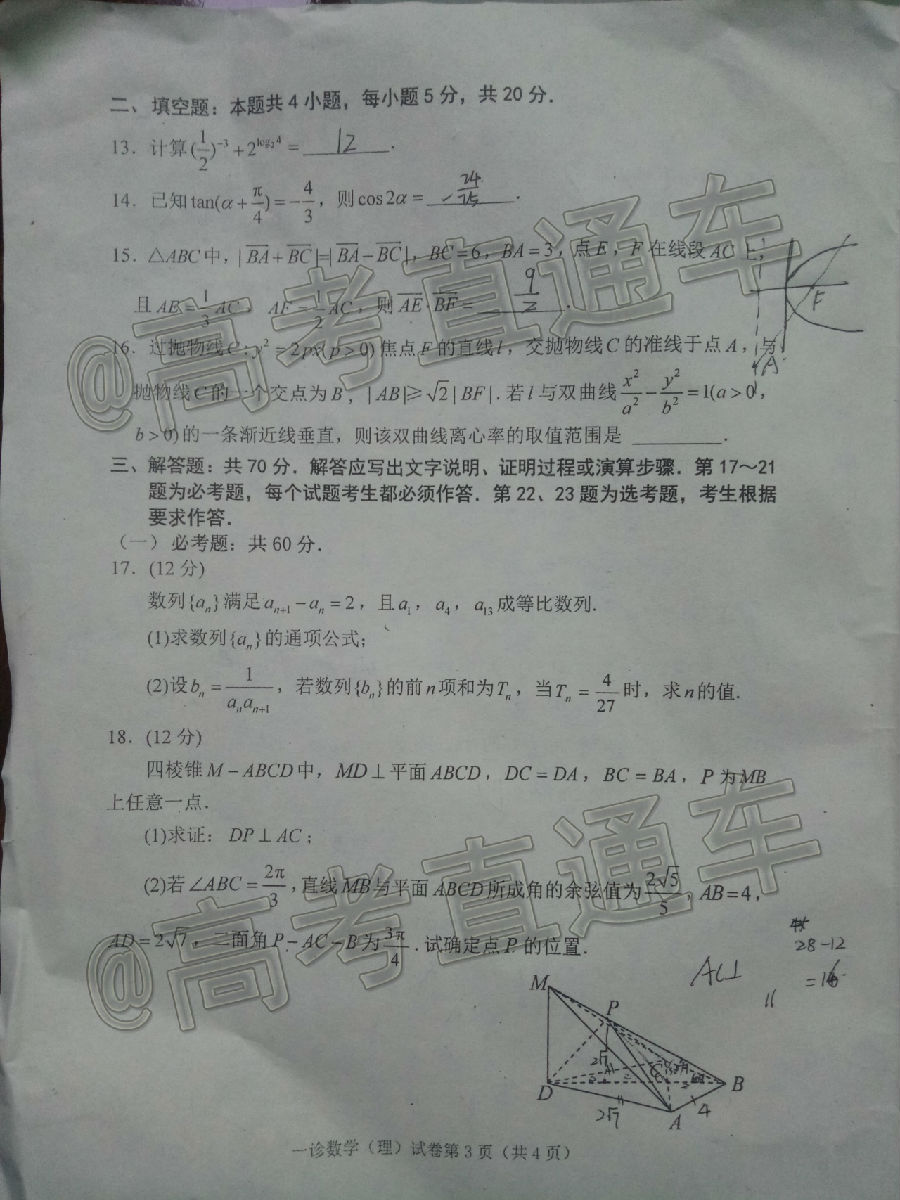 二、填空题：本题共4小题，每小题5分，共20分．
13．计算(1/2)⁻³+2^{log₂4}= 12 ．
14．已知tan(α+π/4)=-4/3，则cos2α= -24/25 ．
15．△ABC中，|BA+BC|=|BA-BC|，BC=6，BA=3，点E，F在线段AC上，
且AE=1/3AC，AF=1/2AC，则AE·BF= 9/2 ．
16．过抛物线C：y²=2px(p>0)焦点F的直线l，交抛物线C的准线于点A，与
抛物线C的一个交点为B，|AB|≥√2|BF|．若l与双曲线x²/a²-y²/b²=1(a>0，
b>0)的一条渐近线垂直，则该双曲线离心率的取值范围是 ______．
F
A
三、解答题：共70分．解答应写出文字说明、证明过程或演算步骤．第17～21
题为必考题，每个试题考生都必须作答．第22、23题为选考题，考生根据
要求作答．
（一）必考题：共60分．
17．(12分)
数列{aₙ}满足aₙ₊₁-aₙ=2，且a₁，a₄，a₁₃成等比数列．
(1)求数列{aₙ}的通项公式；
(2)设bₙ=1/(aₙaₙ₊₁)，若数列{bₙ}的前n项和为Tₙ，当Tₙ=4/27时，求n的值．
18．(12分)
四棱锥M-ABCD中，MD⊥平面ABCD，DC=DA，BC=BA，P为MB
上任意一点．
(1)求证：DP⊥AC；
(2)若∠ABC=2π/3，直线MB与平面ABCD所成角的余弦值为2√5/5，AB=4，
AD=2√7，二面角P-AC-B为3π/4．试确定点P的位置．
28-12
=16
M
P
2√7
C
D
B
2√7
4
A
一诊数学（理）试卷第3页（共4页）
@高考直通车
@高考直通车